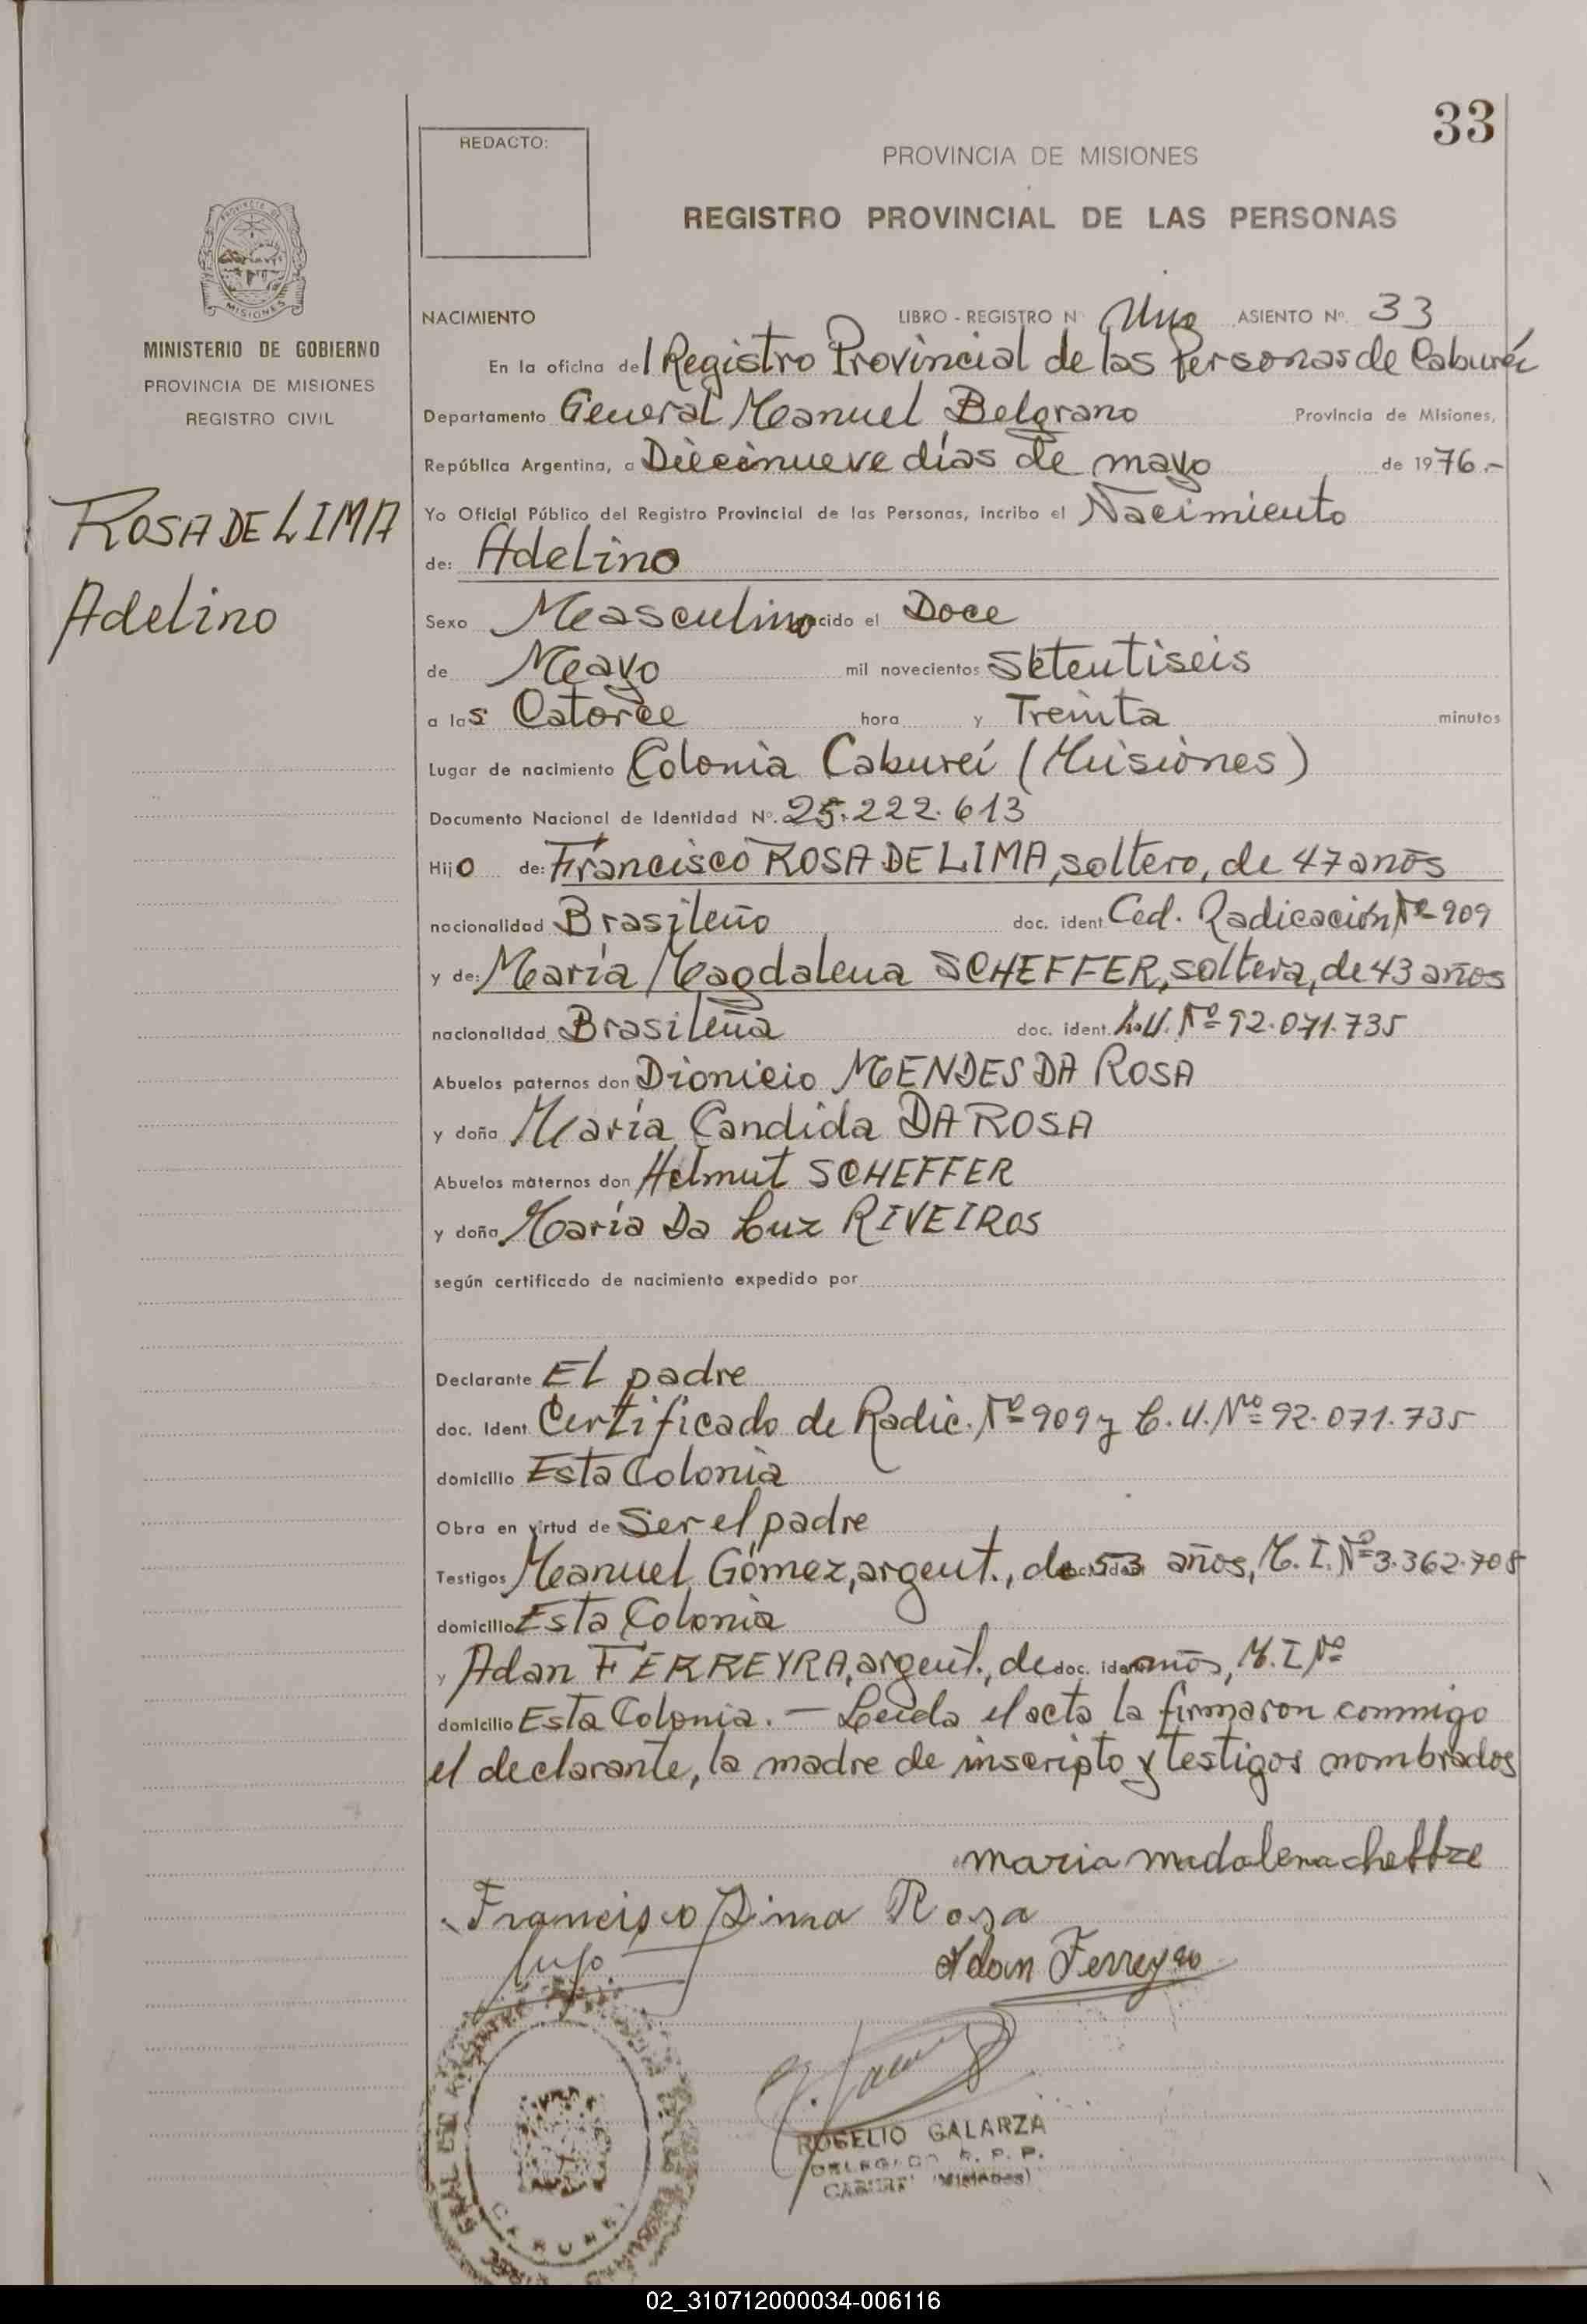 33
REDACTO:
PROVINCIA DE MISIONES
REGISTRO PROVINCIAL DE LAS PERSONAS
MISIONES
MINISTERIO DE GOBIERNO
PROVINCIA DE MISIONES
REGISTRO CIVIL
ROSA DE LIMA
Adelino
NACIMIENTO LIBRO - REGISTRO N° Uno ASIENTO N° 33
En la oficina del Registro Provincial de las Personas de Caburéi
Departamento General Manuel Belgrano Provincia de Misiones,
República Argentina, a Diecinueve días de mayo de 1976.-
Yo Oficial Público del Registro Provincial de las Personas, incribo el Nacimiento
de: Adelino
Sexo Masculino nacido el Doce
de Mayo mil novecientos Setentiseis
a las Catorce hora y Treinta minutos
Lugar de nacimiento Colonia Cabureí (Misiones)
Documento Nacional de Identidad N°. 25.222.613
Hijo de: Francisco ROSA DE LIMA, soltero, de 47 años
nacionalidad Brasileño doc. ident. Ced. Radicación Nº 909
y de: María Magdalena SCHEFFER, soltera, de 43 años
nacionalidad Brasileña doc. ident. Nº 92.071.735
Abuelos paternos don Dionicio MENDES DA ROSA
y doña María Candida DA ROSA
Abuelos maternos don Helmut SCHEFFER
y doña María Da Luz RIVEIROS
según certificado de nacimiento expedido por
Declarante El padre
doc. Ident. Certificado de Radic. Nº 909 y C.U. Nº 92.071.735
domicilio Esta Colonia
Obra en virtud de Ser el padre
Testigos Manuel Gómez, argent., de 53 años, M.I. Nº 3.362.708
domicilio Esta Colonia
y Adan FERREYRA, argent., de doc. ident. años, M.I. Nº
domicilio Esta Colonia. — Leida el acta la firmaron conmigo
el declarante, la madre de inscripto y testigos nombrados
maria madalena cheffre
Francisco Lima Rosa
Adan Ferreyra
ROGELIO GALARZA
DELEGADO R. P. P.
CABUREI (Misiones)
02_310712000034-006116